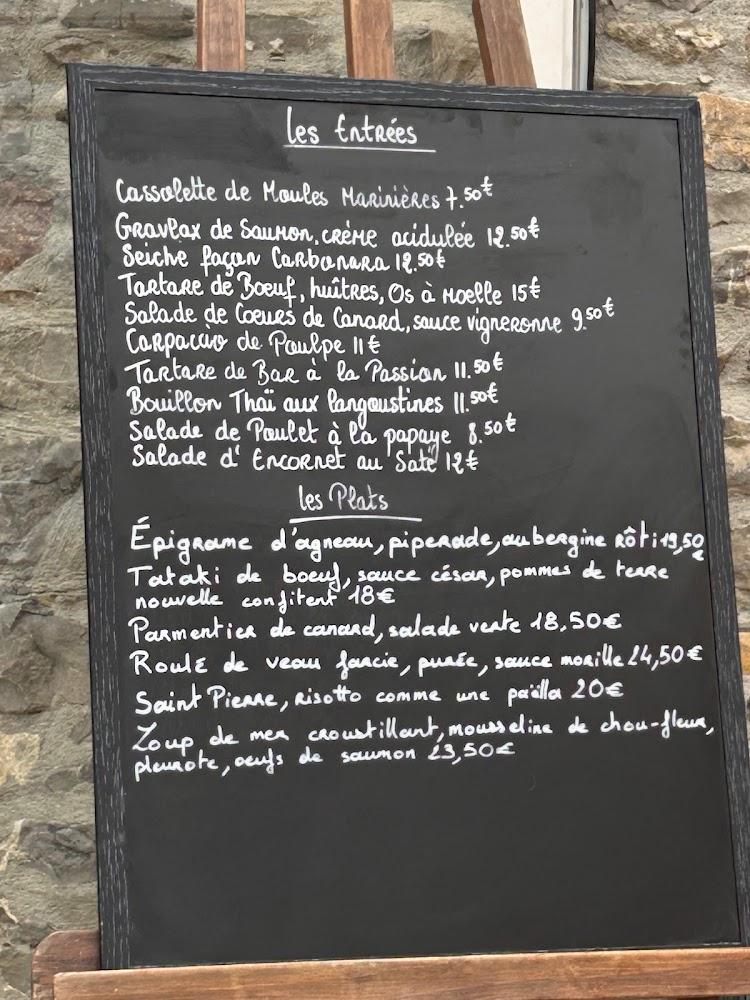 les Entrées
Cassolette de Moules Marinières 7.50€
Gravlax de Saumon, crème acidulée 12.50€
Seiche façon Carbonara 12.50€
Tartare de Boeuf, huîtres, Os à Moelle 15€
Salade de Coeurs de Canard, sauce vigneronne 9.50€
Carpaccio de Poulpe 11€
Tartare de Bar à la Passion 11.50€
Bouillon Thaï aux langoustines 11.50€
Salade de Poulet à la papaye 8.50€
Salade d'Encornet au Saté 12€
les Plats
Épigrame d'agneau, piperade, aubergine rôti 19,50€
Tataki de boeuf, sauce césar, pommes de terre
nouvelle confitent 18€
Parmentier de canard, salade verte 18,50€
Roulé de veau farcie, purée, sauce morille 24,50€
Saint Pierre, risotto comme une paëlla 20€
Loup de mer croustillant, mousseline de chou-fleur,
pleurote, oeufs de saumon 23,50€